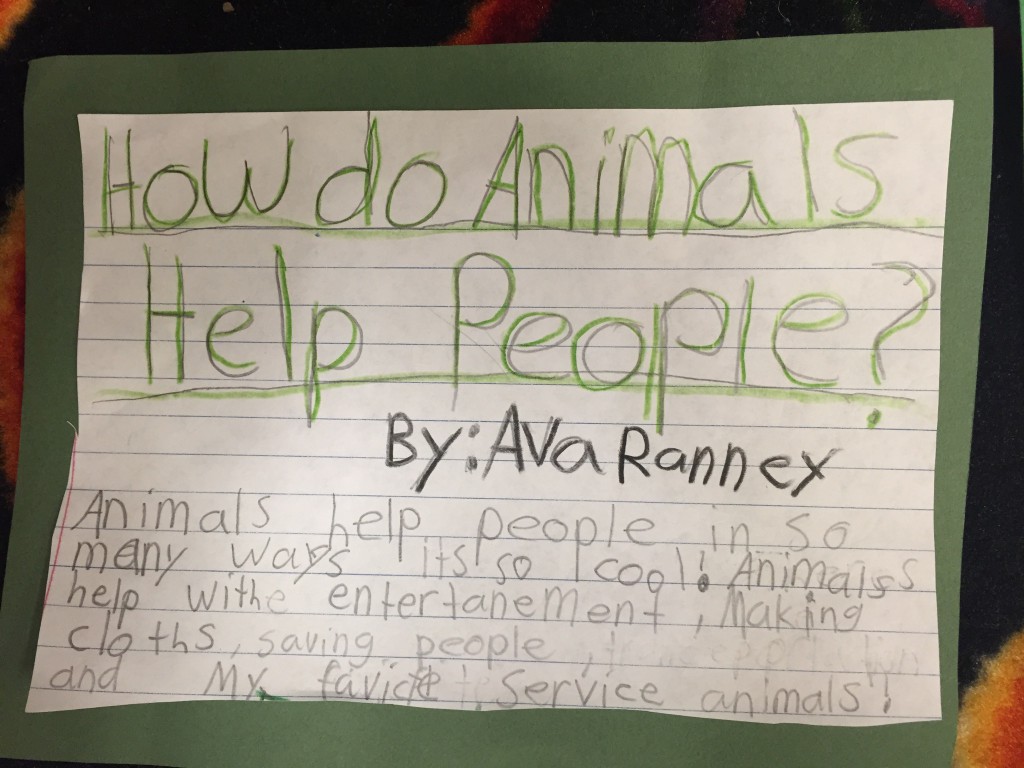 How do Animals
Help People?
By: Ava Ranney
Animals help people in so
many ways its so cool! Animals
help withe entertanement, Making
cloths, saving people,
and My favicte Service animals!